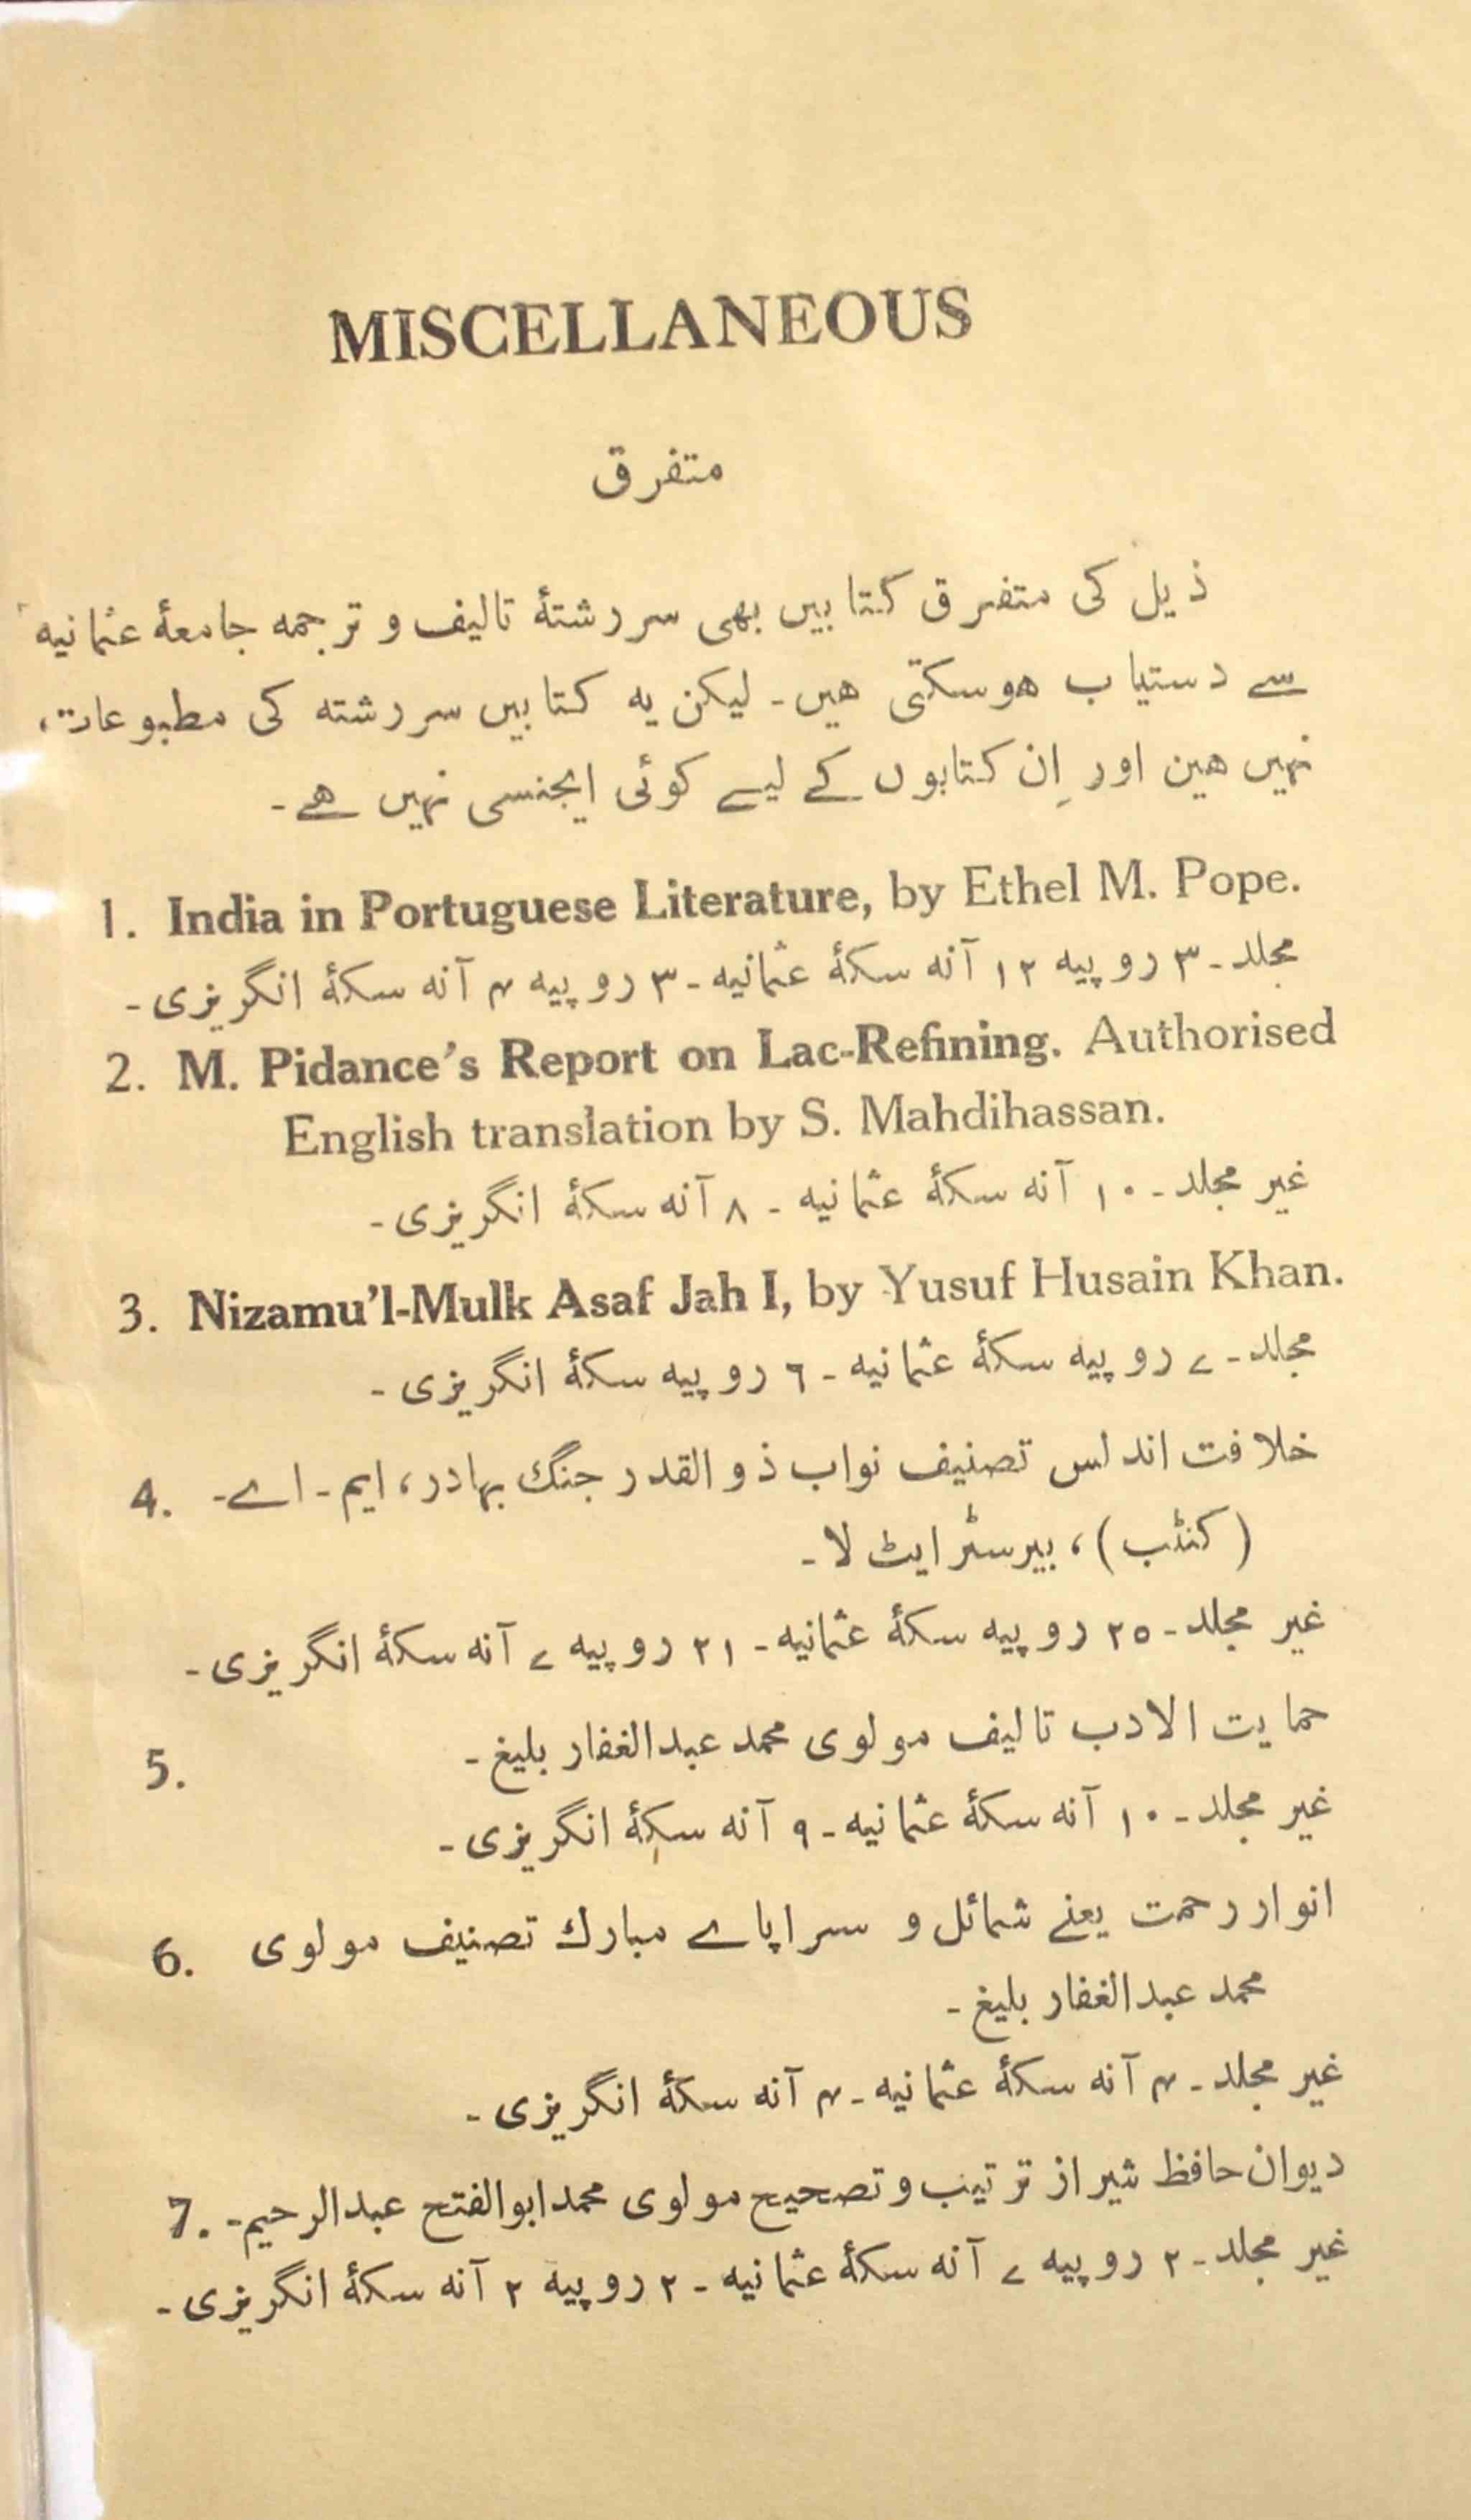 MISCELLANEOUS
متفرق
ذیل کی متفرق کتابیں بھی سررشتۂ تالیف و ترجمہ جامعۂ عثمانیہ
سے دستیاب هوسکتی هیں۔ لیکن یہ کتابیں سررشتہ کی مطبوعات،
نہیں هین اور اِن کتابوں کے لیے کوئی ایجنسی نہیں هے۔
1. India in Portuguese Literature, by Ethel M. Pope.
مجلد۔ ۳ روپیہ ۱۲ آنہ سکۂ عثمانیہ۔ ۳ روپیہ ۴ آنہ سکۂ انگریزی۔
2. M. Pidance's Report on Lac-Refining. Authorised
English translation by S. Mahdihassan.
غیر مجلد۔ ۱۰ آنہ سکۂ عثمانیہ۔ ۸ آنہ سکۂ انگریزی۔
3. Nizamu'l-Mulk Asaf Jah I, by Yusuf Husain Khan.
مجلد۔ ۷ روپیہ سکۂ عثمانیہ۔ ۶ روپیہ سکۂ انگریزی۔
4. خلافت اندلس تصنیف نواب ذوالقدر جنگ بہادر، ایم۔ اے۔
(کنٹب)، بیرسٹر ایٹ لا۔
غیر مجلد۔ ۲۵ روپیہ سکۂ عثمانیہ۔ ۲۱ روپیہ ۷ آنہ سکۂ انگریزی۔
5. حمایت الادب تالیف مولوی محمد عبدالغفار بلیغ۔
غیر مجلد۔ ۱۰ آنہ سکۂ عثمانیہ۔ ۹ آنہ سکۂ انگریزی۔
6. انوار رحمت یعنے شمائل و سراپاے مبارك تصنیف مولوی
محمد عبدالغفار بلیغ۔
غیر مجلد۔ ۴ آنہ سکۂ عثمانیہ۔ ۴ آنہ سکۂ انگریزی۔
7. دیوان حافظ شیراز ترتیب و تصحیح مولوی محمد ابوالفتح عبدالرحیم۔
غیر مجلد۔ ۲ روپیہ ۷ آنہ سکۂ عثمانیہ۔ ۲ روپیہ ۲ آنہ سکۂ انگریزی۔